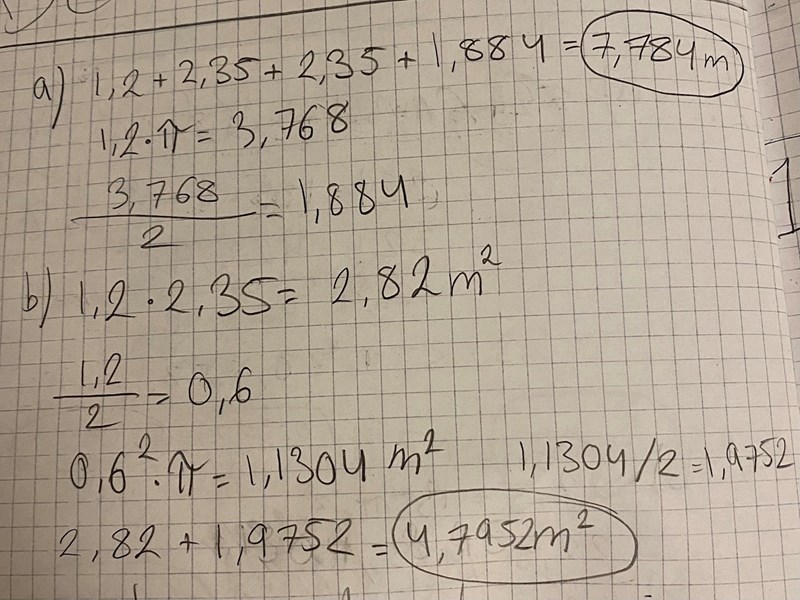 a) 1,2 + 2,35 + 2,35 + 1,884 = 7,784 m
1,2 · π = 3,768
3,768
2
= 1,884
b) 1,2 · 2,35 = 2,82 m²
1,2
2
= 0,6
0,6² · π = 1,1304 m² 1,1304/2 = 1,9752
2,82 + 1,9752 = 4,7952 m²
1